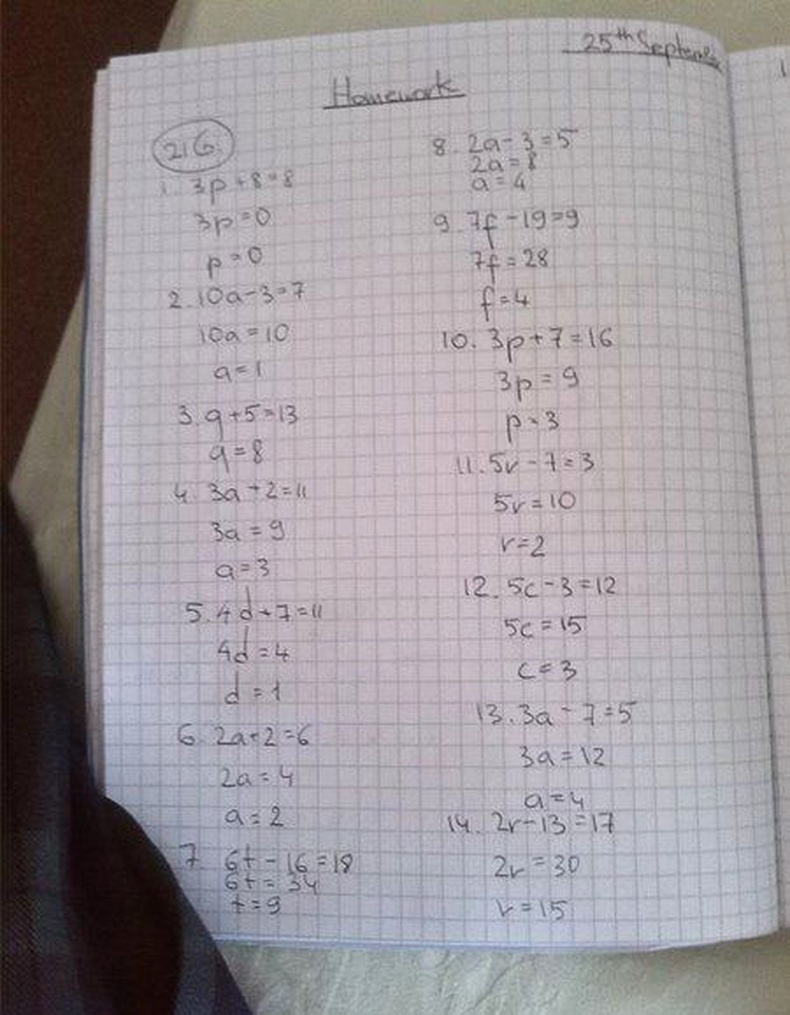 25th Septem
Homework
2G
1. 3p + 8 = 8
3p = 0
p = 0
2. 10a - 3 = 7
10a = 10
a = 1
3. q + 5 = 13
q = 8
4. 3a + 2 = 11
3a = 9
a = 3
5. 4d + 7 = 11
4d = 4
d = 1
6. 2a + 2 = 6
2a = 4
a = 2
7. 6t - 16 = 18
6t = 34
t = 9
8. 2a - 3 = 5
2a = 8
a = 4
9. 7f - 19 = 9
7f = 28
f = 4
10. 3p + 7 = 16
3p = 9
p = 3
11. 5r - 7 = 3
5r = 10
r = 2
12. 5c - 3 = 12
5c = 15
c = 3
13. 3a - 7 = 5
3a = 12
a = 4
14. 2r - 13 = 17
2r = 30
r = 15